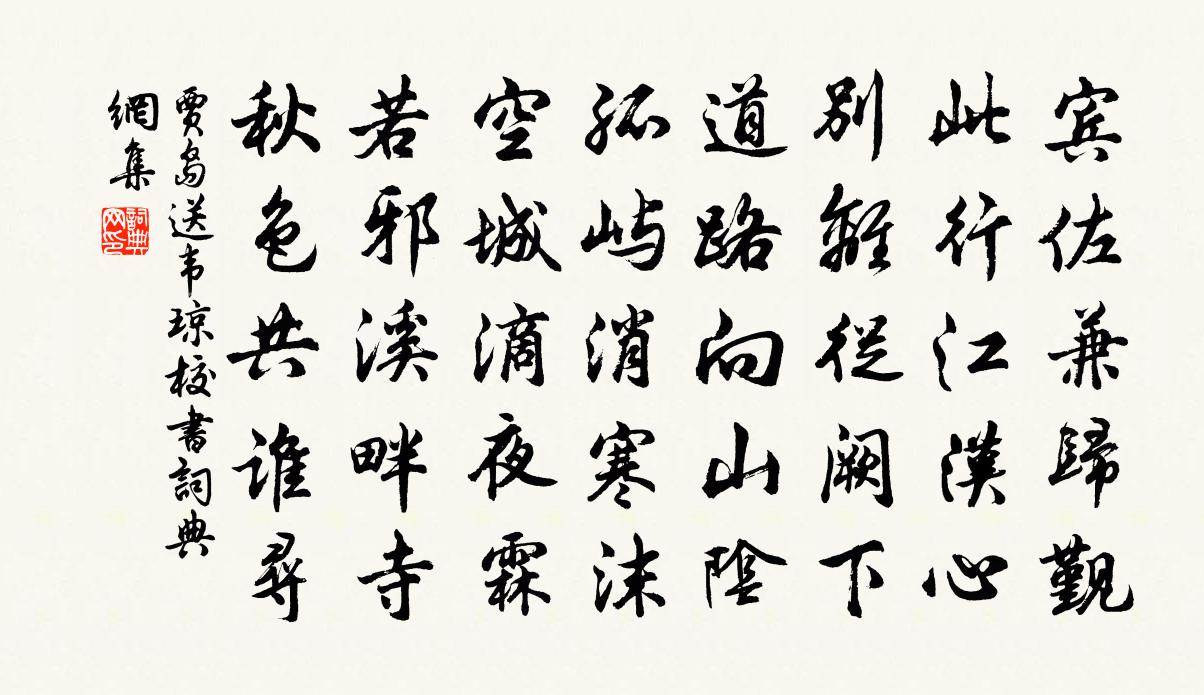 宾佐兼歸覲
此行江漢心
別離從闕下
道路向山陰
孤嶼消寒沫
空城滴夜霖
若邪溪畔寺
秋色共誰尋
賈島送韦琼校書詞典
網集
詞典
网印